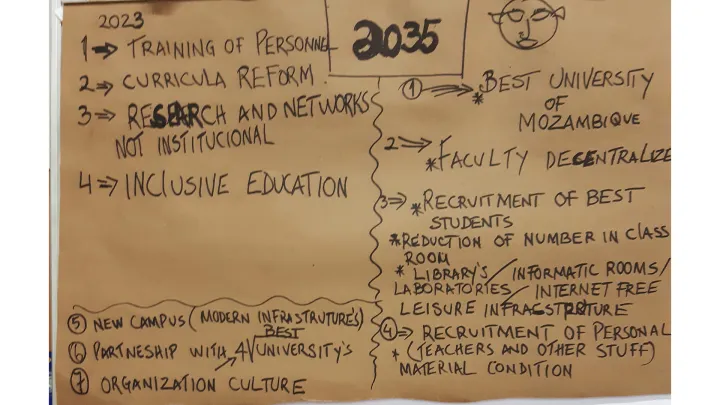 2023
1⇒ TRAINING OF PERSONNEL
2⇒ CURRICULA REFORM
3⇒ RESEARCH AND NETWORKS
NOT INSTITUCIONAL
4⇒ INCLUSIVE EDUCATION
2035
① ⇒ * BEST UNIVERSITY
OF
MOZAMBIQUE
2⇒ * FACULTY DECENTRALIZE
3⇒ * RECRUITMENT OF BEST
STUDENTS
* REDUCTION OF NUMBER IN CLASS
ROOM
* LIBRARY'S / INFORMATIC ROOMS /
LABORATORIES / INTERNET FREE
LEISURE INFRASTRUTURE
④⇒ RECRUITMENT OF PERSONAL
* (TEACHERS AND OTHER STUFF)
MATERIAL CONDITION
⑤ NEW CAMPUS (MODERN INFRASTRUTURE'S)
BEST
⑥ PARTNESHIP WITH 4 UNIVERSITY'S
⑦ ORGANIZATION CULTURE